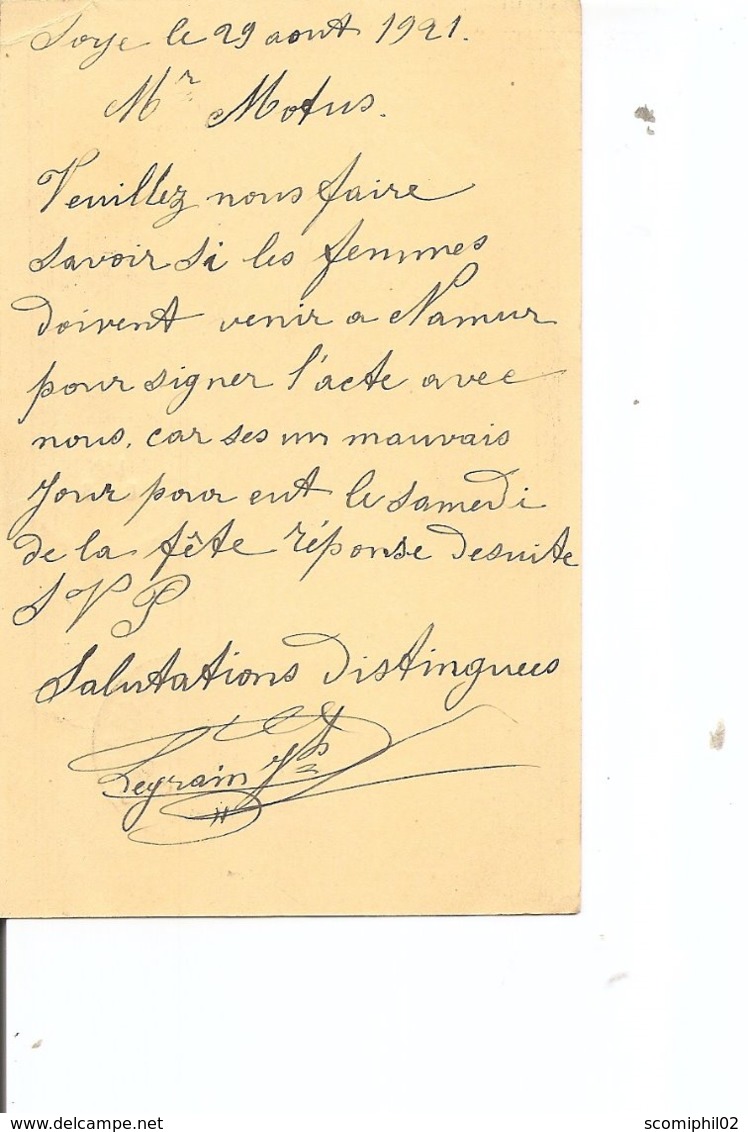 Soye le 29 aout 1921.
Mr Motus.
Veuillez nous faire
savoir si les femmes
doivent venir a Namur
pour signer l'acte avec
nous, car ses un mauvais
jour pour eut le samedi
de la fête réponse desuite
S V P
Salutations distinguees
Legrain
delcampe.net
scomiphil02